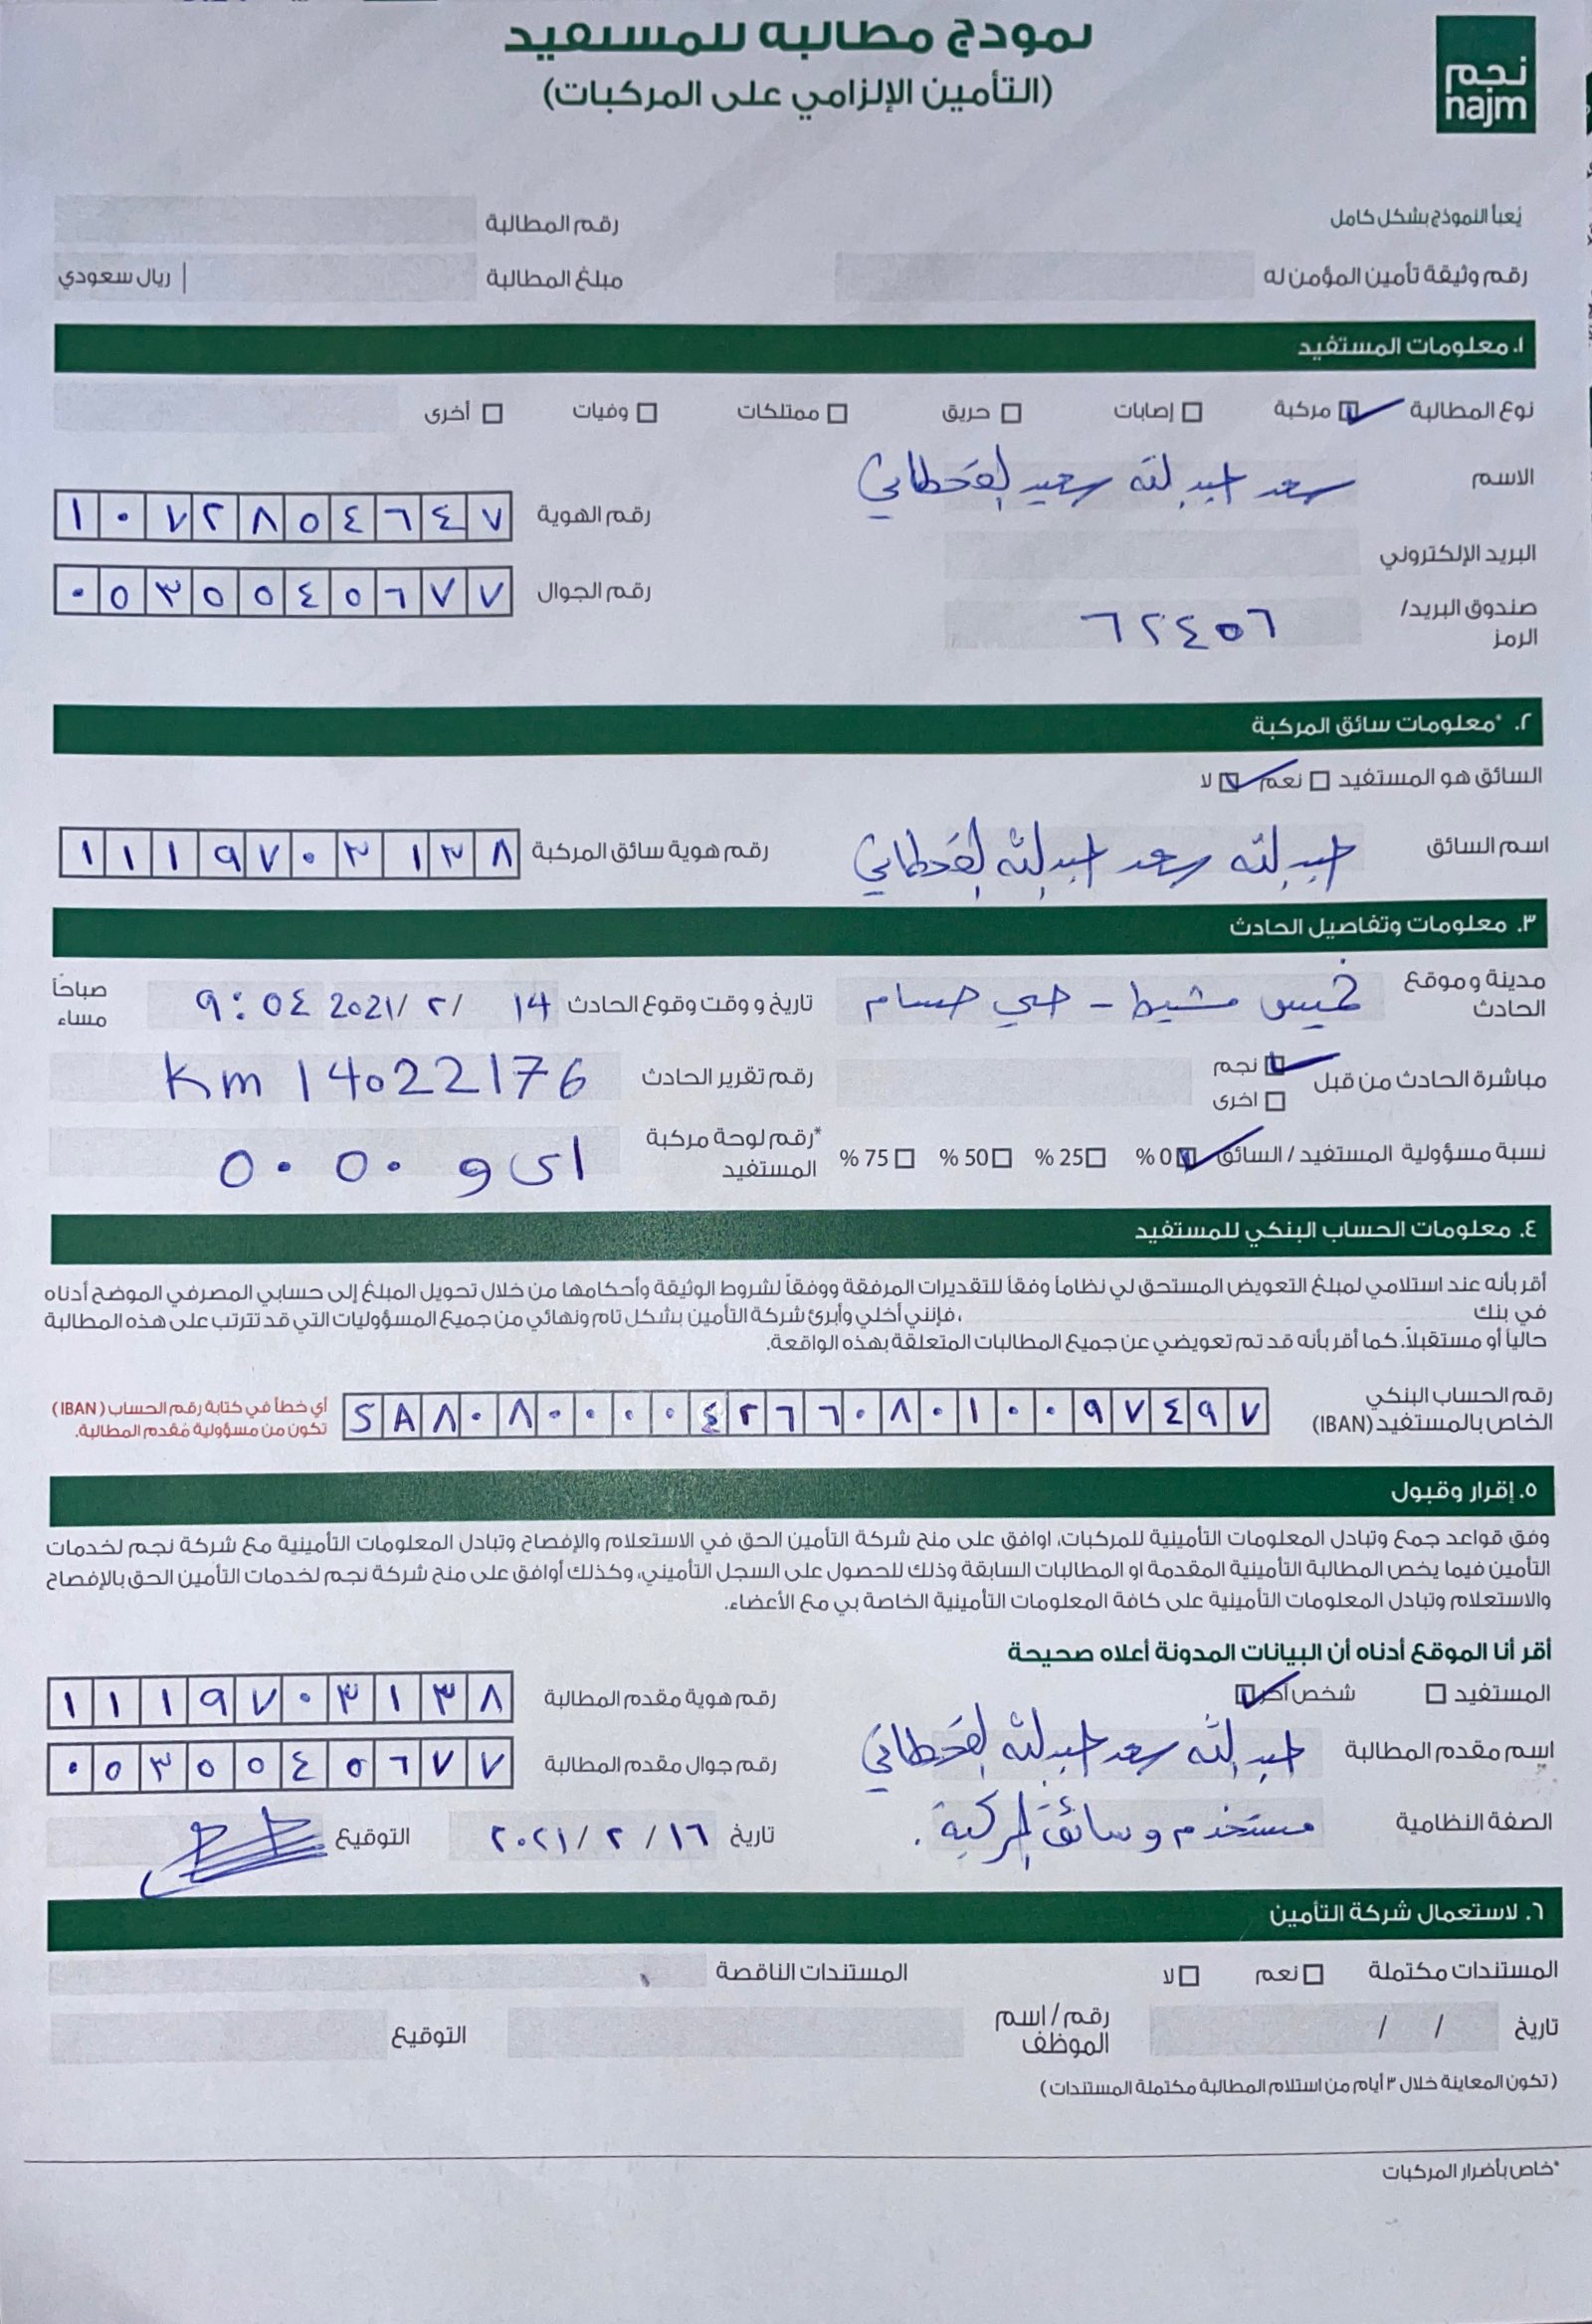 نموذج مطالبة للمستفيد
(التأمين الإلزامي على المركبات)
نجم
najm
يُعبأ النموذج بشكل كامل
رقم المطالبة
رقم وثيقة تأمين المؤمن له
مبلغ المطالبة | ريال سعودي
١. معلومات المستفيد
نوع المطالبة مركبة إصابات حريق ممتلكات وفيات أخرى
الاسم سعد عبد الله سعيد القحطاني
رقم الهوية ١٠٧٢٨٥٤٦٤٧
البريد الإلكتروني
رقم الجوال ٠٥٣٥٥٤٥٦٧٧
صندوق البريد/ الرمز ٦٢٤٥٦
٢. *معلومات سائق المركبة
السائق هو المستفيد نعم لا
اسم السائق عبد الله سعد عبد الله القحطاني
رقم هوية سائق المركبة ١١١٩٧٠٣١٣٨
٣. معلومات وتفاصيل الحادث
مدينة وموقع الحادث خميس مشيط - حي حسام
تاريخ و وقت وقوع الحادث 14 / ٢ /2021 ٩:٥٤ صباحاً مساء
مباشرة الحادث من قبل نجم اخرى
رقم تقرير الحادث Km 14022176
نسبة مسؤولية المستفيد / السائق 0 % 25 % 50 % 75 %
*رقم لوحة مركبة المستفيد ا ى و ٥٠٥٠
٤. معلومات الحساب البنكي للمستفيد
أقر بأنه عند استلامي لمبلغ التعويض المستحق لي نظاماً وفقاً للتقديرات المرفقة ووفقاً لشروط الوثيقة وأحكامها من خلال تحويل المبلغ إلى حسابي المصرفي الموضح أدناه
في بنك ،فإنني أخلي وأبرئ شركة التأمين بشكل تام ونهائي من جميع المسؤوليات التي قد تترتب على هذه المطالبة
حالياً أو مستقبلاً. كما أقر بأنه قد تم تعويضي عن جميع المطالبات المتعلقة بهذه الواقعة.
رقم الحساب البنكي الخاص بالمستفيد (IBAN) SA٨٠٨٠٠٠٠٤٢٦٦٠٨٠١٠٠٩٧٤٩٧
أي خطأ في كتابة رقم الحساب (IBAN)
تكون من مسؤولية مُقدم المطالبة.
٥. إقرار وقبول
وفق قواعد جمع وتبادل المعلومات التأمينية للمركبات، اوافق على منح شركة التأمين الحق في الاستعلام والإفصاح وتبادل المعلومات التأمينية مع شركة نجم لخدمات
التأمين فيما يخص المطالبة التأمينية المقدمة او المطالبات السابقة وذلك للحصول على السجل التأميني، وكذلك أوافق على منح شركة نجم لخدمات التأمين الحق بالإفصاح
والاستعلام وتبادل المعلومات التأمينية على كافة المعلومات التأمينية الخاصة بي مع الأعضاء.
أقر أنا الموقع أدناه أن البيانات المدونة أعلاه صحيحة
المستفيد شخص آخر
رقم هوية مقدم المطالبة ١١١٩٧٠٣١٣٨
اسم مقدم المطالبة عبد الله سعد عبد الله القحطاني
رقم جوال مقدم المطالبة ٠٥٣٥٥٤٥٦٧٧
الصفة النظامية مستخدم و سائق المركبة .
تاريخ ١٦ / ٢ / ٢٠٢١ التوقيع
٦. لاستعمال شركة التأمين
المستندات مكتملة نعم لا المستندات الناقصة
تاريخ / / رقم / اسم الموظف التوقيع
(تكون المعاينة خلال ٣ أيام من استلام المطالبة مكتملة المستندات)
*خاص بأضرار المركبات